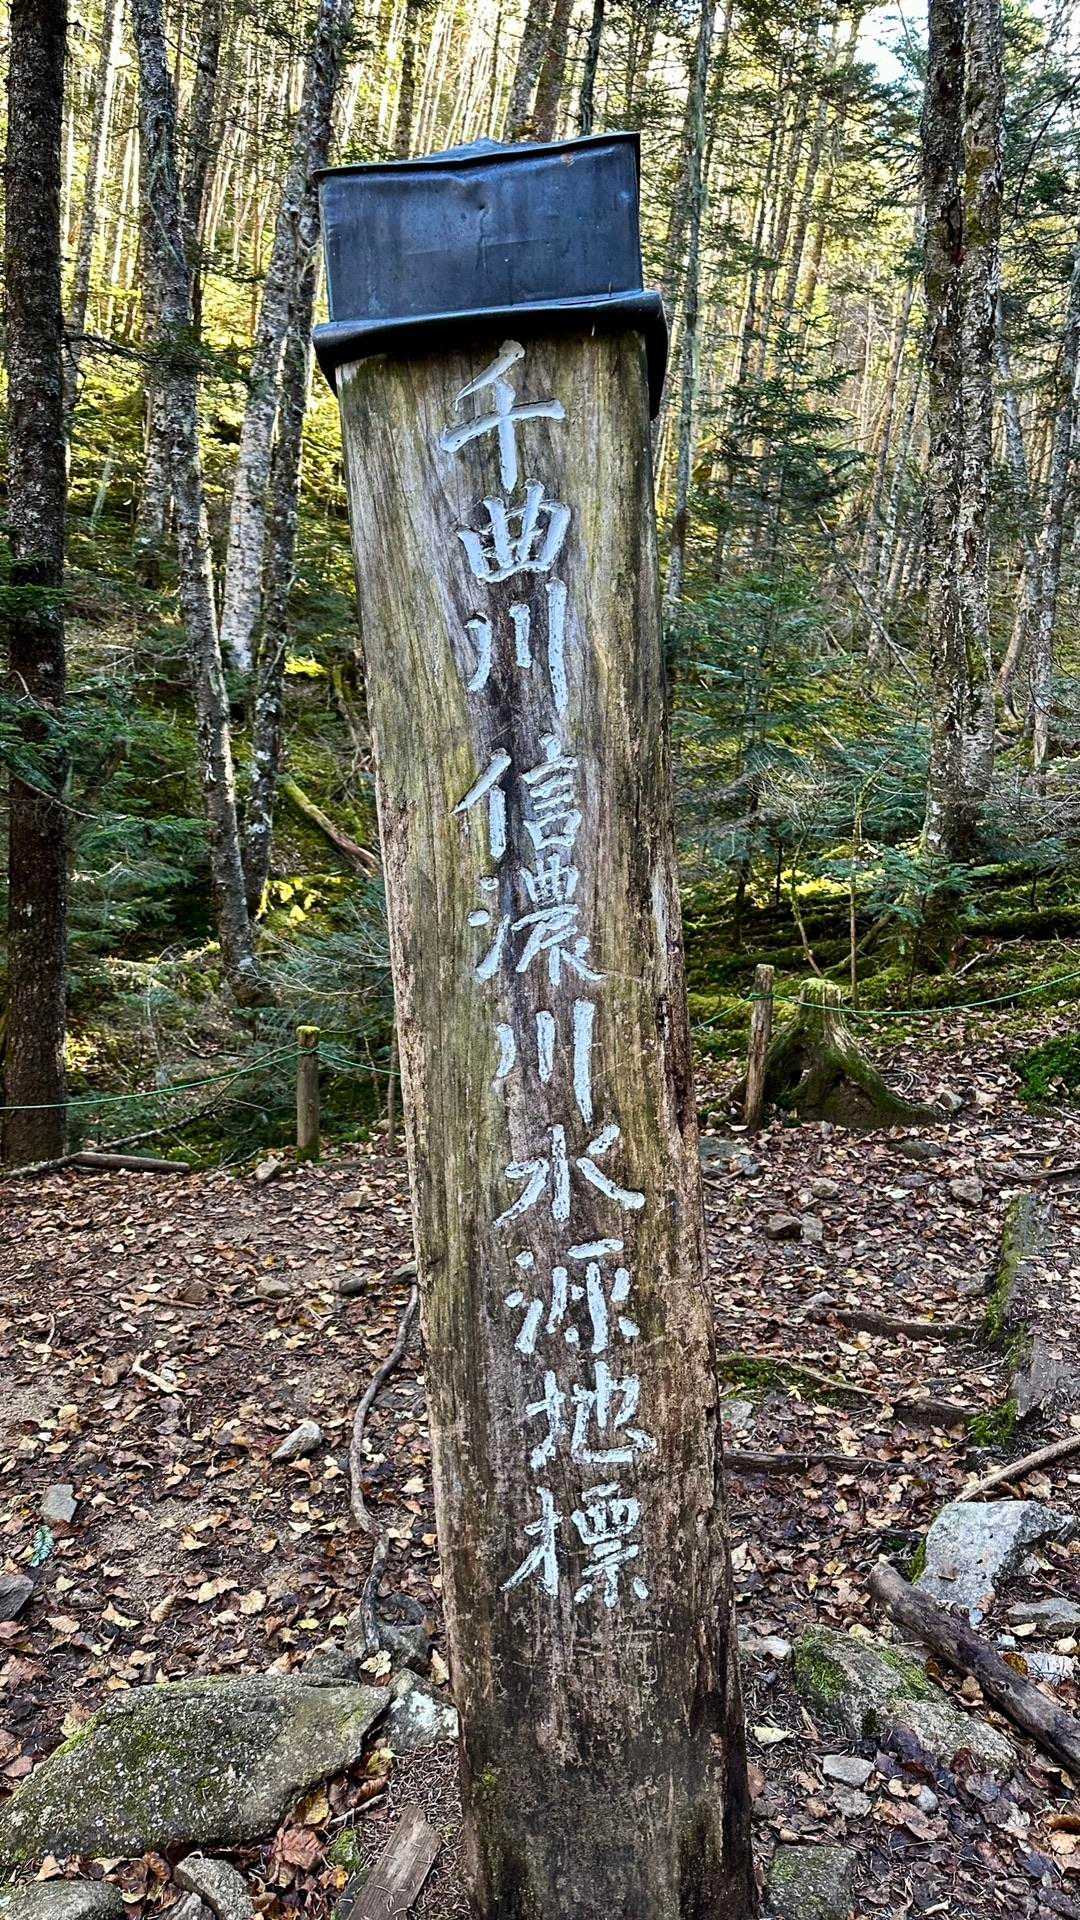 千曲川信濃川水源地標